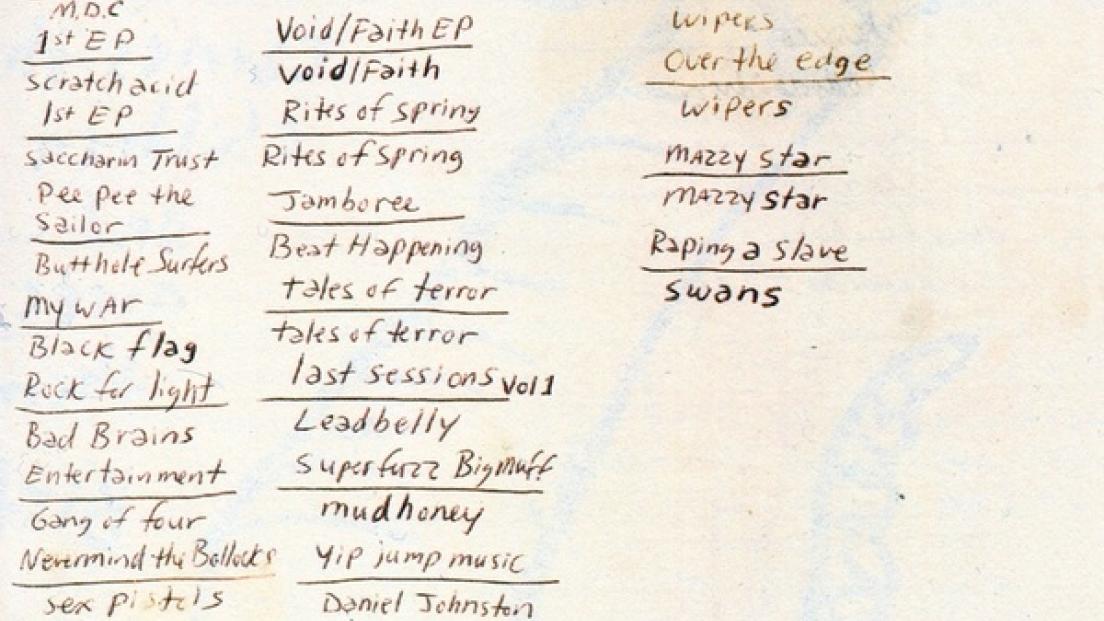 M.D.C
1st EP
scratch acid
1st EP
Saccharin Trust
Pee Pee the
Sailor
Butthole Surfers
My WAR
Black flag
Rock for light
Bad Brains
Entertainment
Gang of four
Nevermind the Bollocks
sex pistols
Void/Faith EP
Void/Faith
Rites of spring
Rites of Spring
Jamboree
Beat Happening
tales of terror
tales of terror
last sessions Vol 1
Leadbelly
Superfuzz Bigmuff
mudhoney
Yip jump music
Daniel Johnston
Wipers
Over the edge
wipers
MAZZY Star
MAZZY Star
Raping a slave
swans